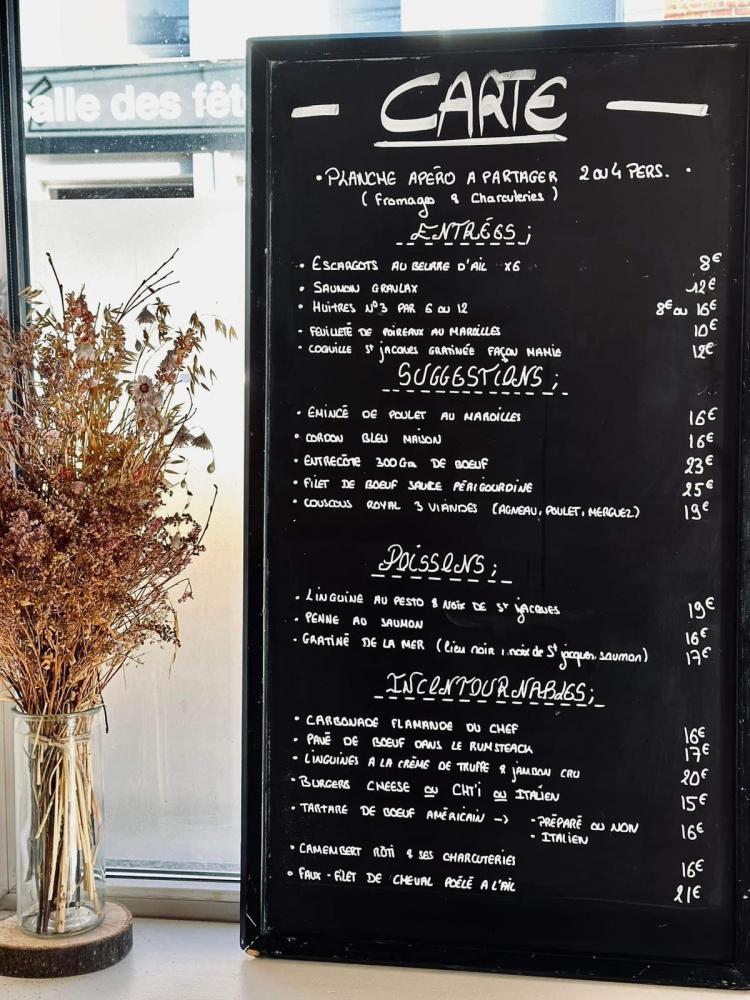 alle des fêt
CARTE
• PLANCHE APÉRO A PARTAGER 2 ou 4 PERS. •
( Fromages & Charcuteries )
ENTRÉES ;
• ESCARGOTS AU BEURRE D'AIL x6 8€
• SAUMON GRAVLAX 12€
• HUITRES N°3 PAR 6 OU 12 8€ ou 16€
• FEUILLETÉ DE POIREAUX AU MAROILLES 10€
• COQUILLE St JACQUES GRATINÉE FAÇON MAMIE 12€
SUGGESTIONS ;
• EMINCÉ DE POULET AU MAROILLES 16€
• CORDON BLEU MAISON 16€
• ENTRECÔTE 300Gr DE BOEUF 23€
• FILET DE BOEUF SAUCE PÉRIGOURDINE 25€
• COUSCOUS ROYAL 3 VIANDES (AGNEAU, POULET, MERGUEZ) 19€
POISSONS ;
• LINGUINE AU PESTO & NOIX DE St JACQUES 19€
• PENNE AU SAUMON 16€
• GRATINÉ DE LA MER (lieu noir, noix de St jacques, saumon) 17€
INCONTOURNABLES ;
• CARBONADE FLAMANDE DU CHEF 16€
• PAVÉ DE BOEUF DANS LE RUMSTEACK 17€
• LINGUINES A LA CRÈME DE TRUFFE & JAMBON CRU 20€
• BURGERS CHEESE ou CHT'I ou ITALIEN 15€
• TARTARE DE BOEUF AMÉRICAIN -> • PRÉPARÉ OU NON 16€
• ITALIEN
• CAMEMBERT RÔTI & SES CHARCUTERIES 16€
• FAUX-FILET DE CHEVAL POÊLÉ A L'AIL 21€